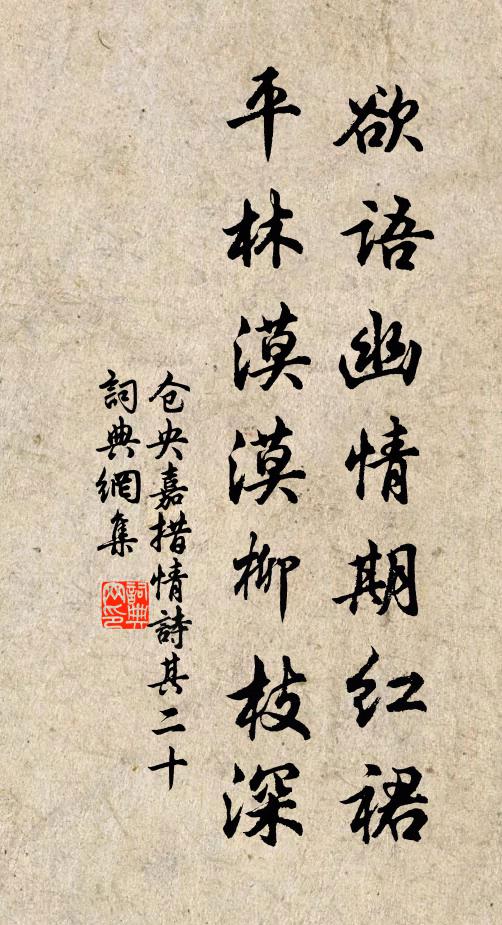 欲語幽情期红裙
平林漠漠柳枝深
仓央嘉措情詩其二十
詞典網集
詞典网印